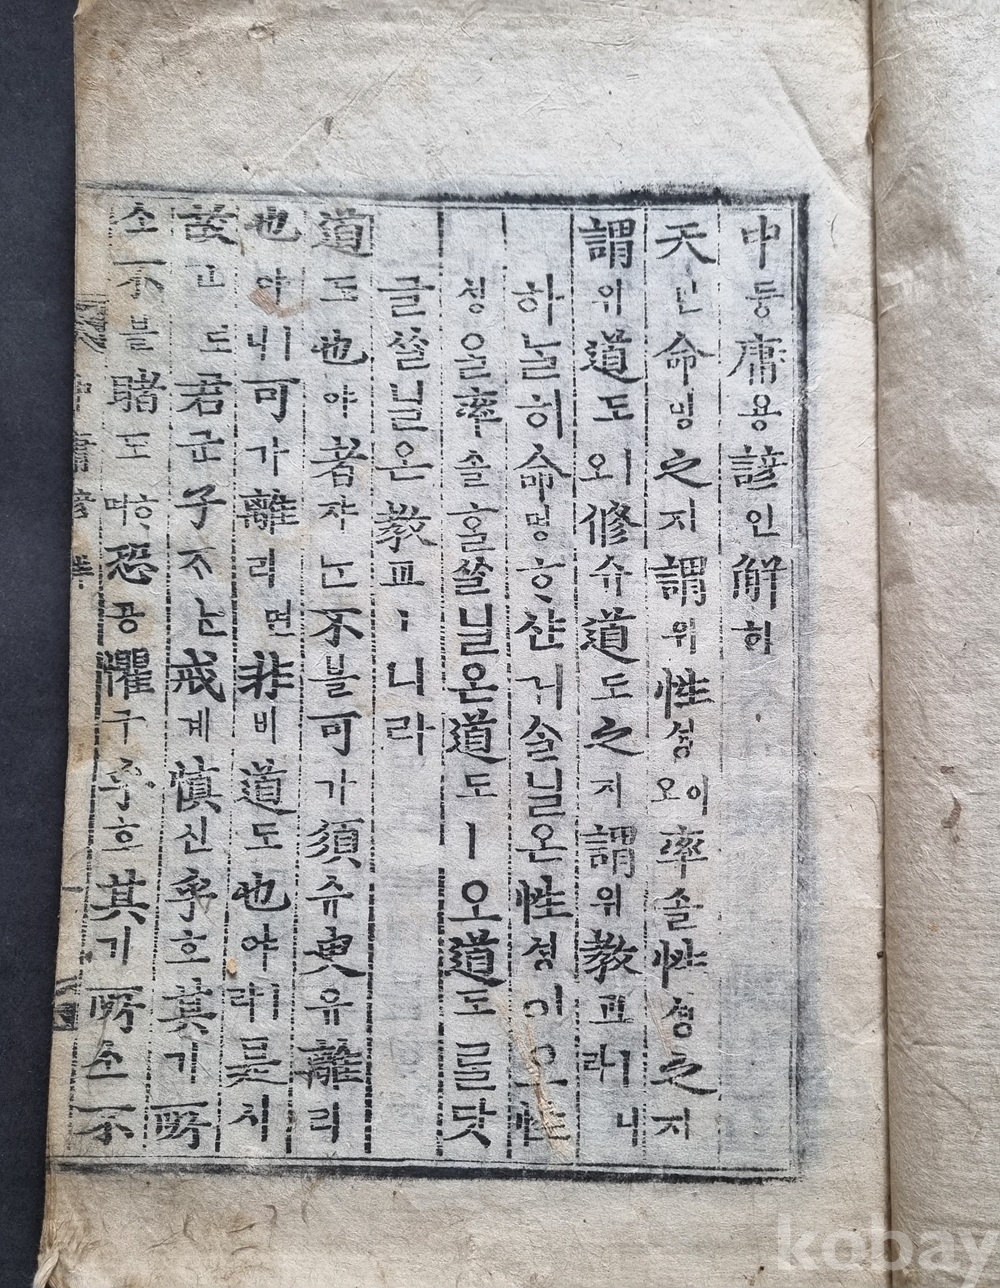 中듕庸용諺언解ᄒᆡ
天텬命명之지謂위性셩이오率솔性셩之지
謂위道도ㅣ오修슈道도之지謂위敎교ㅣ니라
하ᄂᆞᆯ히命명ᄒᆞ샨거ᄉᆞᆯ닐온性셩이오性
셩을率솔홀ᄊᆞᆯ닐온道도ㅣ오道도를닷
글ᄊᆞᆯ닐온敎교ㅣ니라
道도也야者쟈ᄂᆞᆫ不블可가須슈臾유離리
也야ㅣ니可가離리면非비道도也야ㅣ라是시
故고도君군子ᄌᆞᄂᆞᆫ戒계愼신乎호其기所
소不블睹도ᄒᆞ며恐공懼구乎호其기所소不
kobay